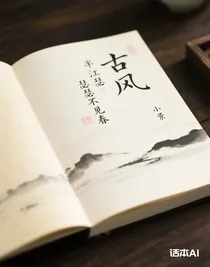 古风
半江瑟
瑟瑟不见春
小景
话本AI